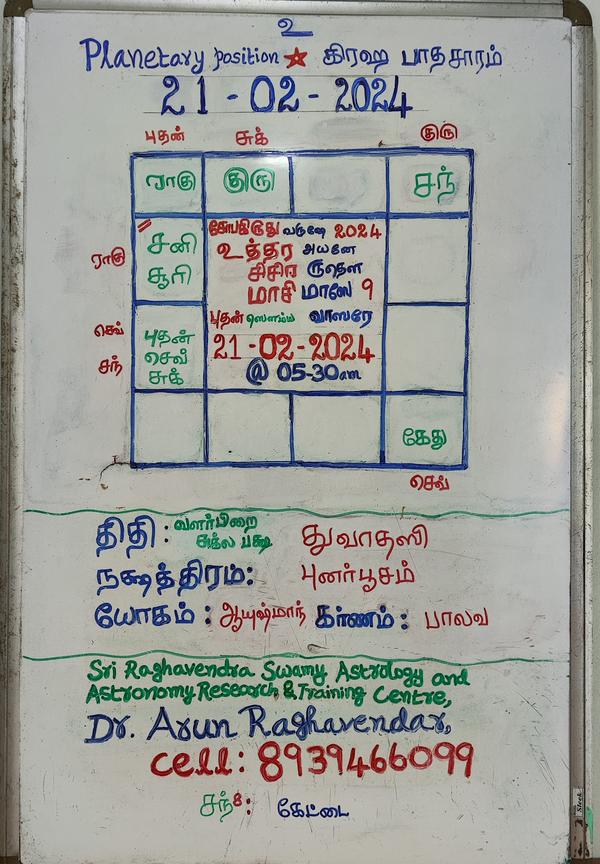 உ
Planetary position ★ கிரஹ பாதசாரம்
21-02-2024
புதன் சுக் குரு
ராகு குரு சந்
ராகு
சனி
சூரி
செவ்
சந்
புதன்
செவ்
சுக்
சோபகிருது வருஷே 2024
உத்தர அயனே
சிசிர ருதௌ
மாசி மாஸே 9
புதன் ஸௌம்ய வாஸரே
21-02-2024
@ 05-30am
கேது
செவ்
திதி : வளர்பிறை
சுக்ல பக்ஷ துவாதஸி
நக்ஷத்திரம்: புனர்பூசம்
யோகம் : ஆயுஷ்மாந் கர்ணம் : பாலவ
Sri Raghavendra Swamy Astrology and
Astronomy Research & Training Centre,
Dr. Arun Raghavendar,
cell: 8939466099
சந் 8: கேட்டை
Steck